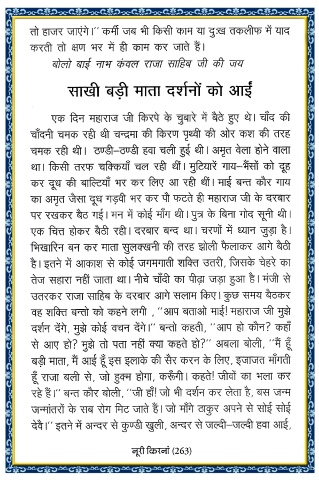 तो हाजर जाएंगे।’’ कर्मी जब भी किसी काम या दुःख तकलीफ में याद
करती तो क्षण भर में ही काम कर जाते हैं।
बोलो बाई नाभ कंवल राजा साहिब जी की जय
साखी बड़ी माता दर्शनों को आईं
एक दिन महाराज जी किरपे के चुबारे में बैठे हुए थे। चाँद की
चाँदनी चमक रही थी चन्द्रमा की किरण पृथ्वी की ओर कश की तरह
चमक रही थी। ठण्डी-ठण्डी हवा चली हुई थी। अमृत वेला होने वाला
था। किसी तरफ चक्कियाँ चल रही थीं। मुटियारें गाय-भैंसों को दूह
कर दूध की बाल्टियाँ भर कर लिए आ रही थीं। माई बन्त कौर गाय
का अमृत जैसा दूध गड़वी भर कर पी फटते ही महाराज जी के दरबार
पर रखकर बैठ गई। मन में कोई माँग थी। पुत्र के बिना गोद सूनी थी।
एक चित्त होकर बैठी रही। दरबार बन्द था। चरणों में ध्यान जुड़ा है।
भिखारिन बन कर माता सुलक्खनी की तरह झोली फैलाकर आगे बैठी
है। इतने में आकाश से कोई जगमगाती शक्ति उतरी, जिसके चेहरे का
तेज सहारा नहीं जाता था। नीचे चाँदी का पीढ़ा जड़ा हुआ है। मंजी से
उतरकर राजा साहिब के दरबार आगे सलाम किए। कुछ समय बैठकर
वह शक्ति बन्तो को कहने लगी , ‘‘आप बताओ माई! महाराज जी मुझे
दर्शन देंगे, मुझे कोई वचन देंगे।’’ बन्तो कहती, ‘‘आप हो कौन? कहाँ
से आए हो? मुझे तो पता नहीं क्या कहते हो?’’ अबला बोली, ‘‘मैं हूँ
बड़ी माता, मैं आई हूँ इस इलाके की सैर करन के लिए, इजाजत माँगती
हूँ राजा बली से, जो हुक्म होगा, करूँगी। कहते! जीवों का भला कर
रहे हैं।’’ बन्त कौर बोली, ‘‘जी हाँ! जो भी दर्शन कर लेता है, बस जन्म
जन्मांतरों के राब रोग मिट जाते हैं। जो माँगे ठाकुर अपने से सोई सोई
देवै।’’ इतने में अन्दर से कुण्डी खुली, अन्दर से जल्दी-जल्दी हवा आई,
नूरी किरनां (263)